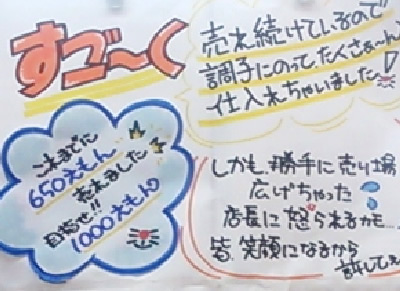 すご〜く
売れ続けているので
調子にのってたくさぁ〜ん
仕入れちゃいました!
これまでに
650えもん
売れました
目指せ!!
1000えもん
しかも、勝手に売り場
広げちゃった
店長に怒られるかも…
皆、笑顔になるから
許してえ